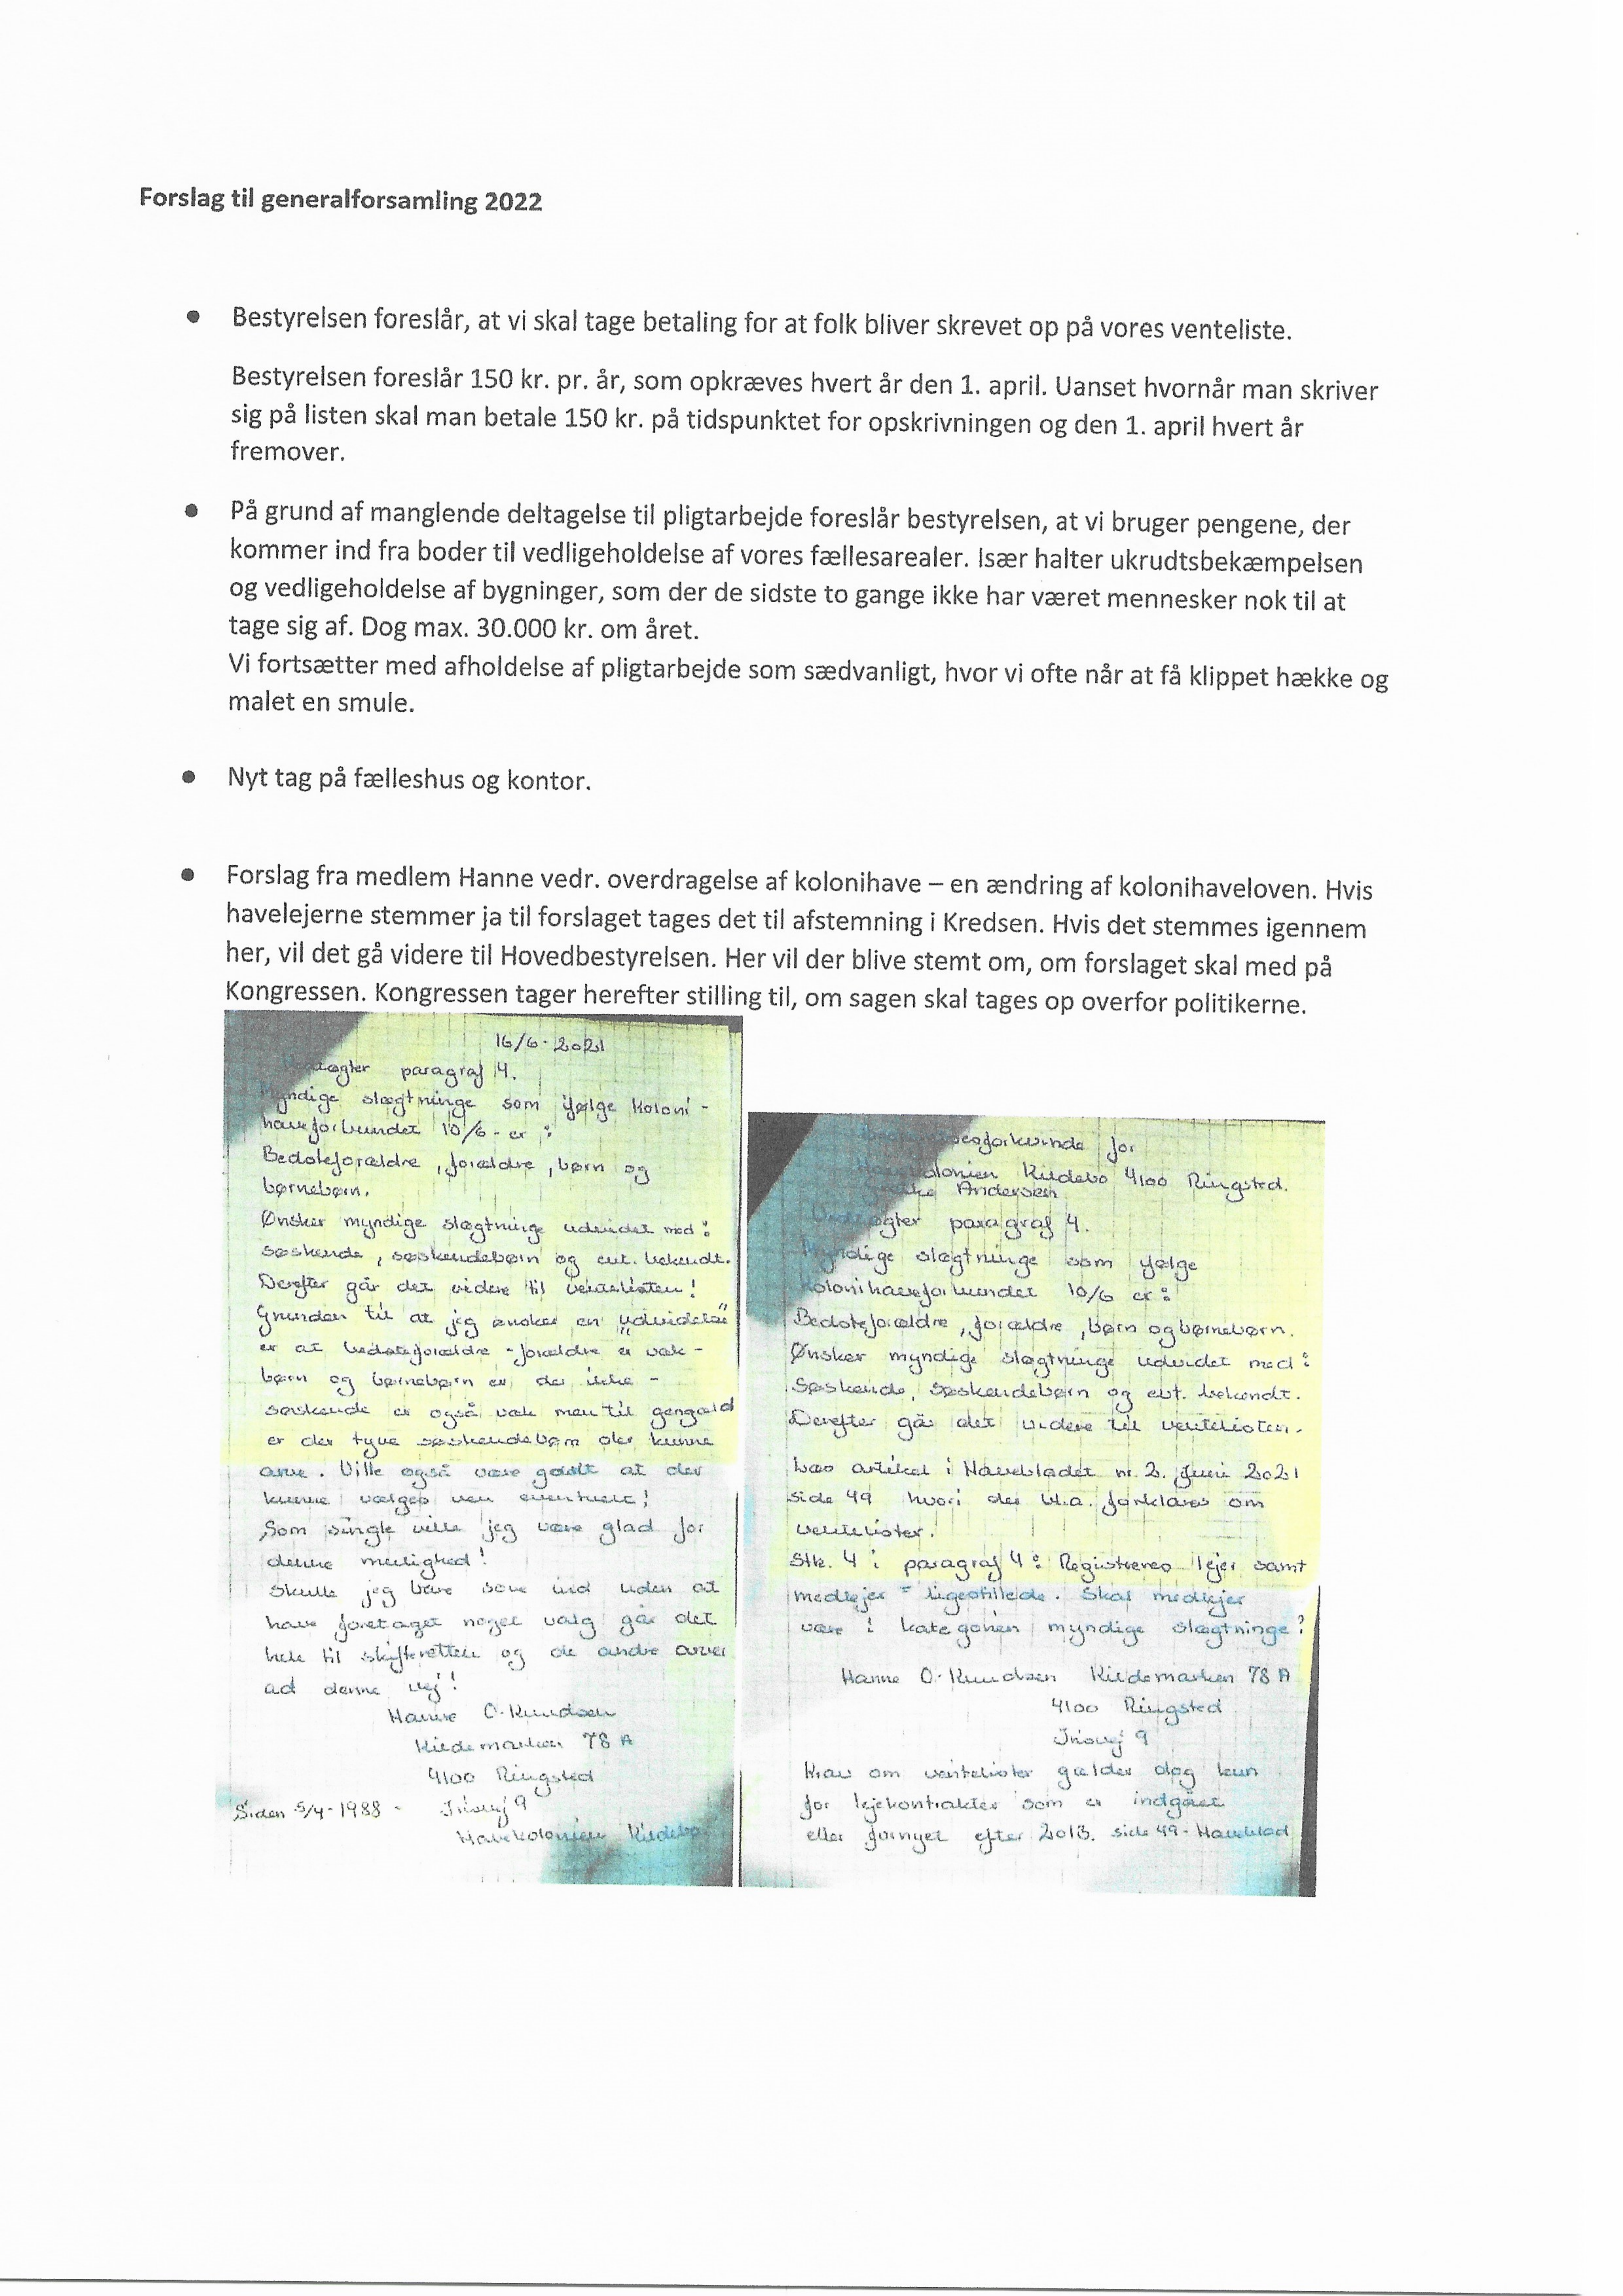 Forslag til generalforsamling 2022
● Bestyrelsen foreslår, at vi skal tage betaling for at folk bliver skrevet op på vores venteliste.
Bestyrelsen foreslår 150 kr. pr. år, som opkræves hvert år den 1. april. Uanset hvornår man skriver
sig på listen skal man betale 150 kr. på tidspunktet for opskrivningen og den 1. april hvert år
fremover.
● På grund af manglende deltagelse til pligtarbejde foreslår bestyrelsen, at vi bruger pengene, der
kommer ind fra boder til vedligeholdelse af vores fællesarealer. Især halter ukrudtsbekæmpelsen
og vedligeholdelse af bygninger, som der de sidste to gange ikke har været mennesker nok til at
tage sig af. Dog max. 30.000 kr. om året.
Vi fortsætter med afholdelse af pligtarbejde som sædvanligt, hvor vi ofte når at få klippet hække og
malet en smule.
● Nyt tag på fælleshus og kontor.
● Forslag fra medlem Hanne vedr. overdragelse af kolonihave – en ændring af kolonihaveloven. Hvis
havelejerne stemmer ja til forslaget tages det til afstemning i Kredsen. Hvis det stemmes igennem
her, vil det gå videre til Hovedbestyrelsen. Her vil der blive stemt om, om forslaget skal med på
Kongressen. Kongressen tager herefter stilling til, om sagen skal tages op overfor politikerne.
16/6-2021
Vedtægter paragraf 4.
Myndige slægtninge som ifølge Koloni-
haveforbundet 10/6- er :
Bedsteforældre, forældre, børn og
børnebørn.
Ønsker myndige slægtninge udvidet med :
søskende, søskendebørn og evt. bekendt.
Derefter går det videre til ventelisten!
Grunden til at jeg ønsker en "udvidelse"
er at bedsteforældre - forældre er væk -
børn og børnebørn er der ikke -
søskende er også væk men til gengæld
er der tyve søskendebørn der kunne
arve. Ville også være godt at der
kunne vælges ven eventuelt!
Som single ville jeg være glad for
denne mulighed!
Skulle jeg bare sove ind uden at
have foretaget noget valg går det
hele til skifteretten og de andre arver
ad denne vej!
Hanne O. Knudsen
Kildemarken 78 A
4100 Ringsted
Siden 5/4-1988 - Irisvej 9
Havekolonien Kildebo
for
Havekolonien Kildebo 4100 Ringsted.
Andersen
Vedtægter paragraf 4.
Myndige slægtninge som ifølge
Kolonihaveforbundet 10/6 er :
Bedsteforældre, forældre, børn og børnebørn.
Ønsker myndige slægtninge udvidet med :
Søskende, søskendebørn og evt. bekendt.
Derefter går det videre til ventelisten.
Læs artikel i Havebladet nr. 2. Juni 2021
side 49 hvori der bl.a. forklares om
ventelister.
Stk. 4 i paragraf 4 : Registreres lejer samt
medlejer = ligestillede. Skal medlejer
være i kategorien myndige slægtninge?
Hanne O. Knudsen Kildemarken 78 A
4100 Ringsted
Irisvej 9
Krav om ventelister gælder dog kun
for lejekontrakter som er indgået
eller fornyet efter 2013. side 49 - Haveblad